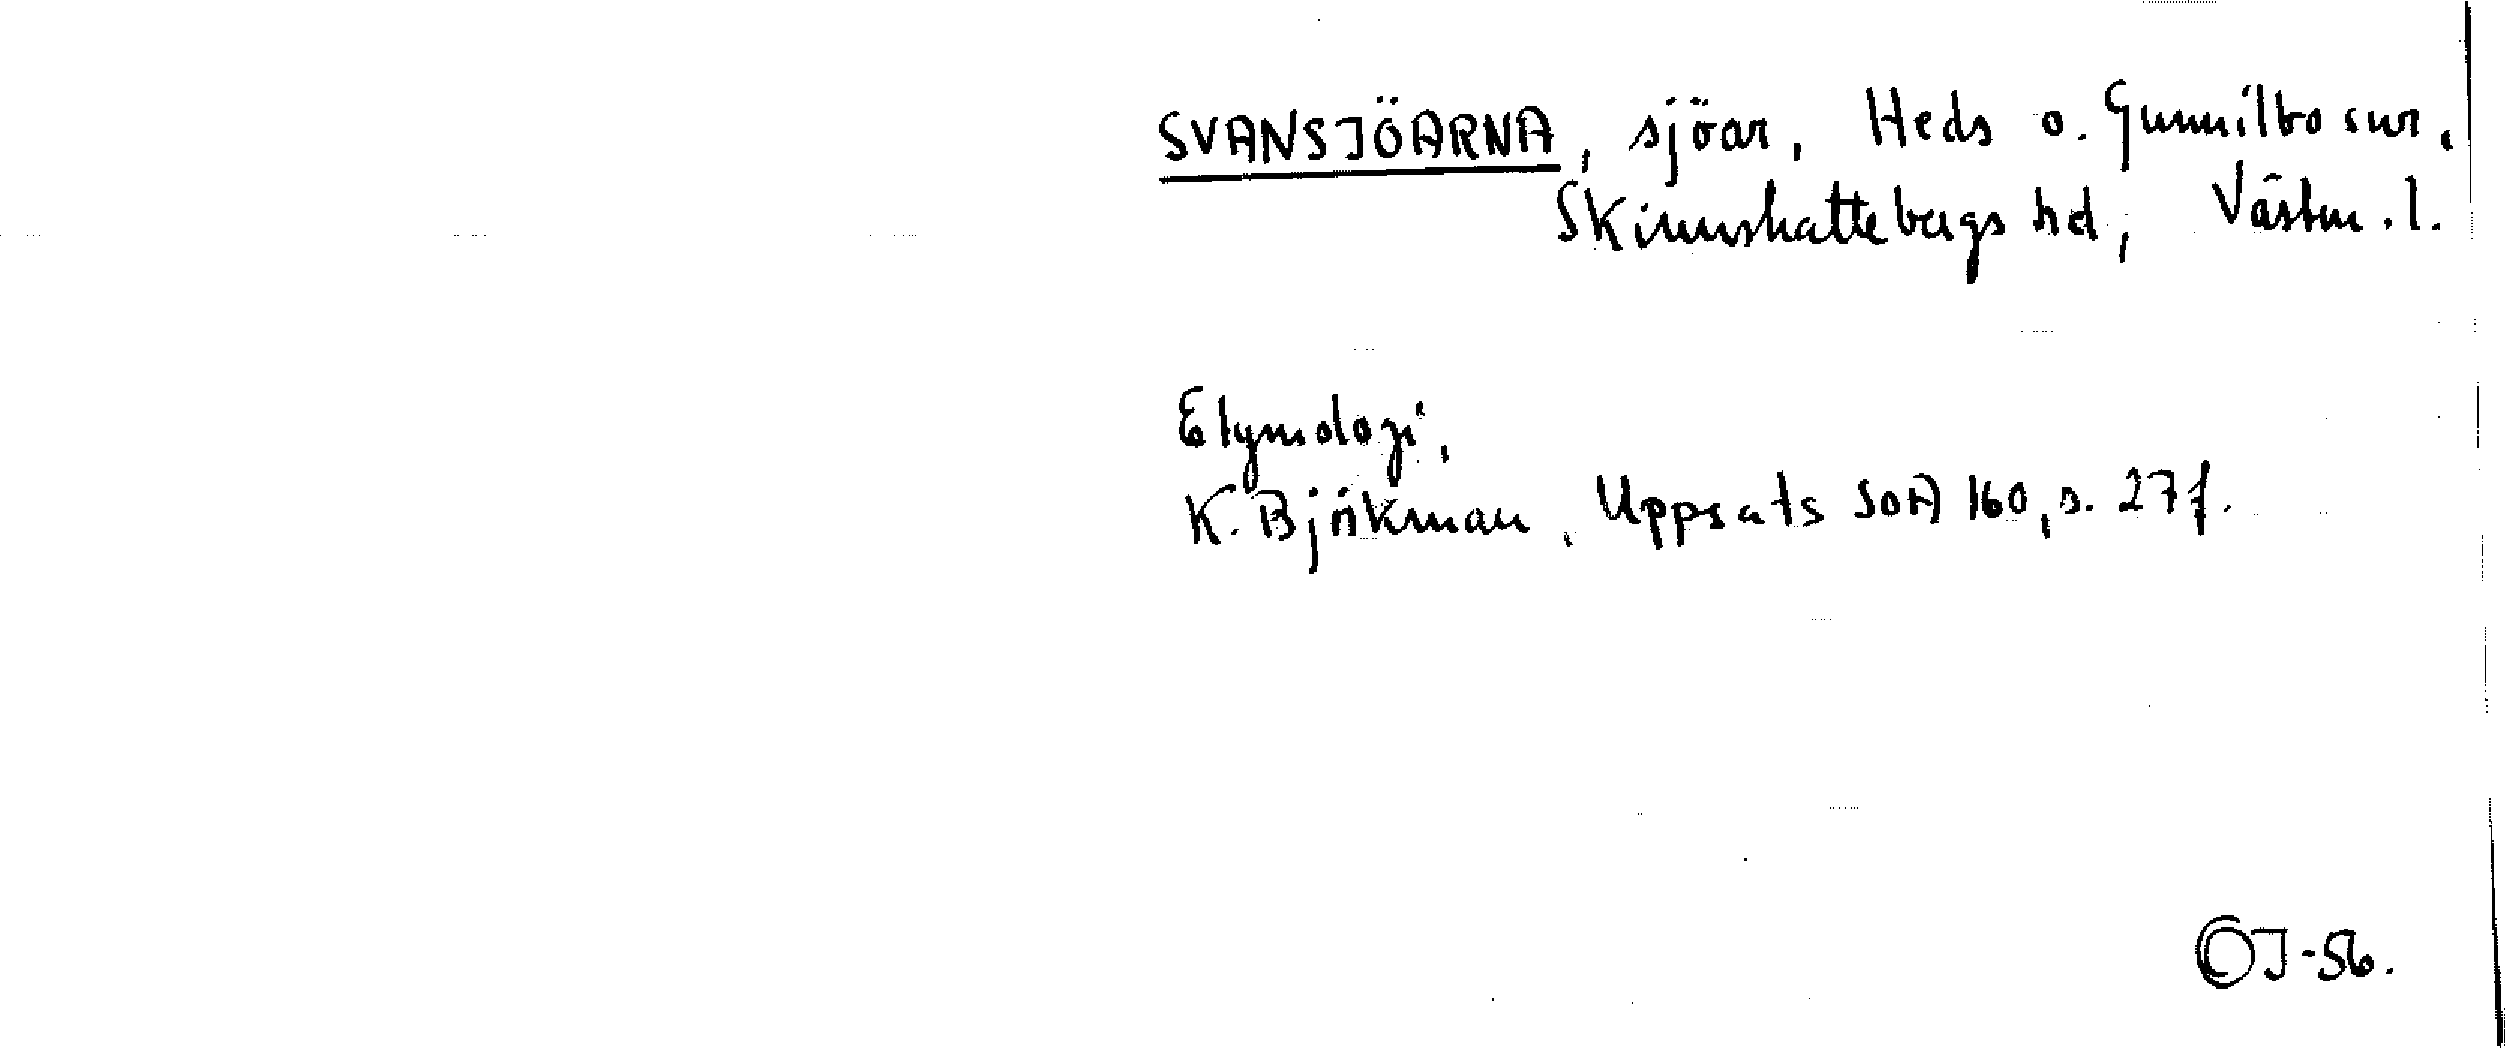 SVANSJÖARNA, sjöar, Heds o. Gunnilbo snr,
Skinnskattebergs hd, Västm. l.
Etymologi,
K. Björkman, Uppsats SOA 160, s. 27 f.
COJ-56.